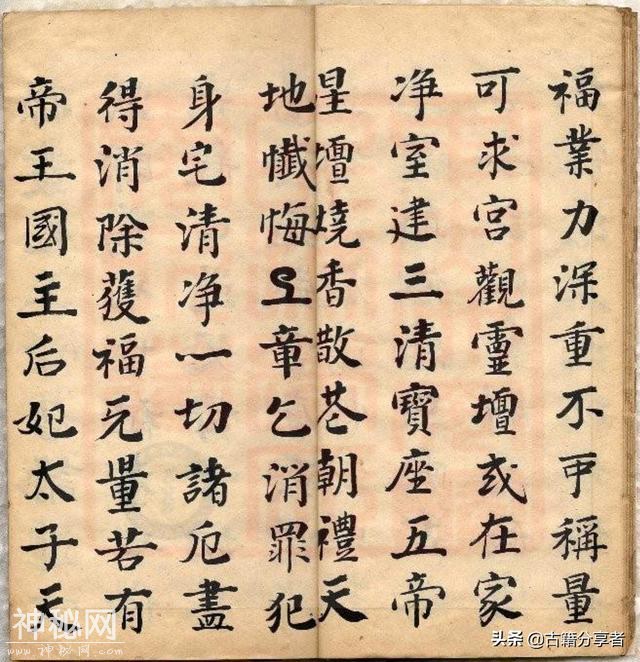 福業力深重不可稱量
可求宮觀靈壇或在家
净室建三清寶座五帝
星壇燒香散花朝禮天
地懺悔上章乞消罪犯
身宅清净一切諸厄盡
得消除獲福无量若有
帝王國主后妃太子天
神秘网
www.神秘网.com
头条 @古籍分享者